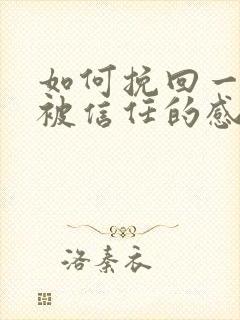 如何挽回一
被信任的感
洛秦衣